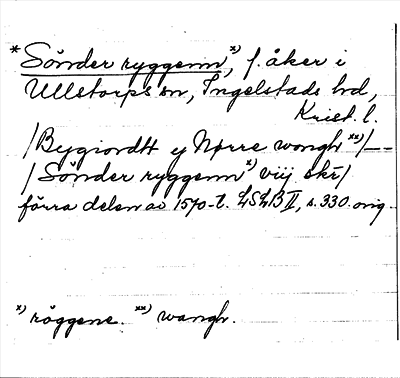 *Sönder ryggenn*), f. åker i
Ullstorps sn, Ingelstads hd,
Krist. l.
/Bygiordtt y Nørre wongh **)/---
/Sönder ryggenn*) viij skr̄/
förra delen av 1570-t. LSLB II, s. 330. orig.
*) röggene. **) wangh.